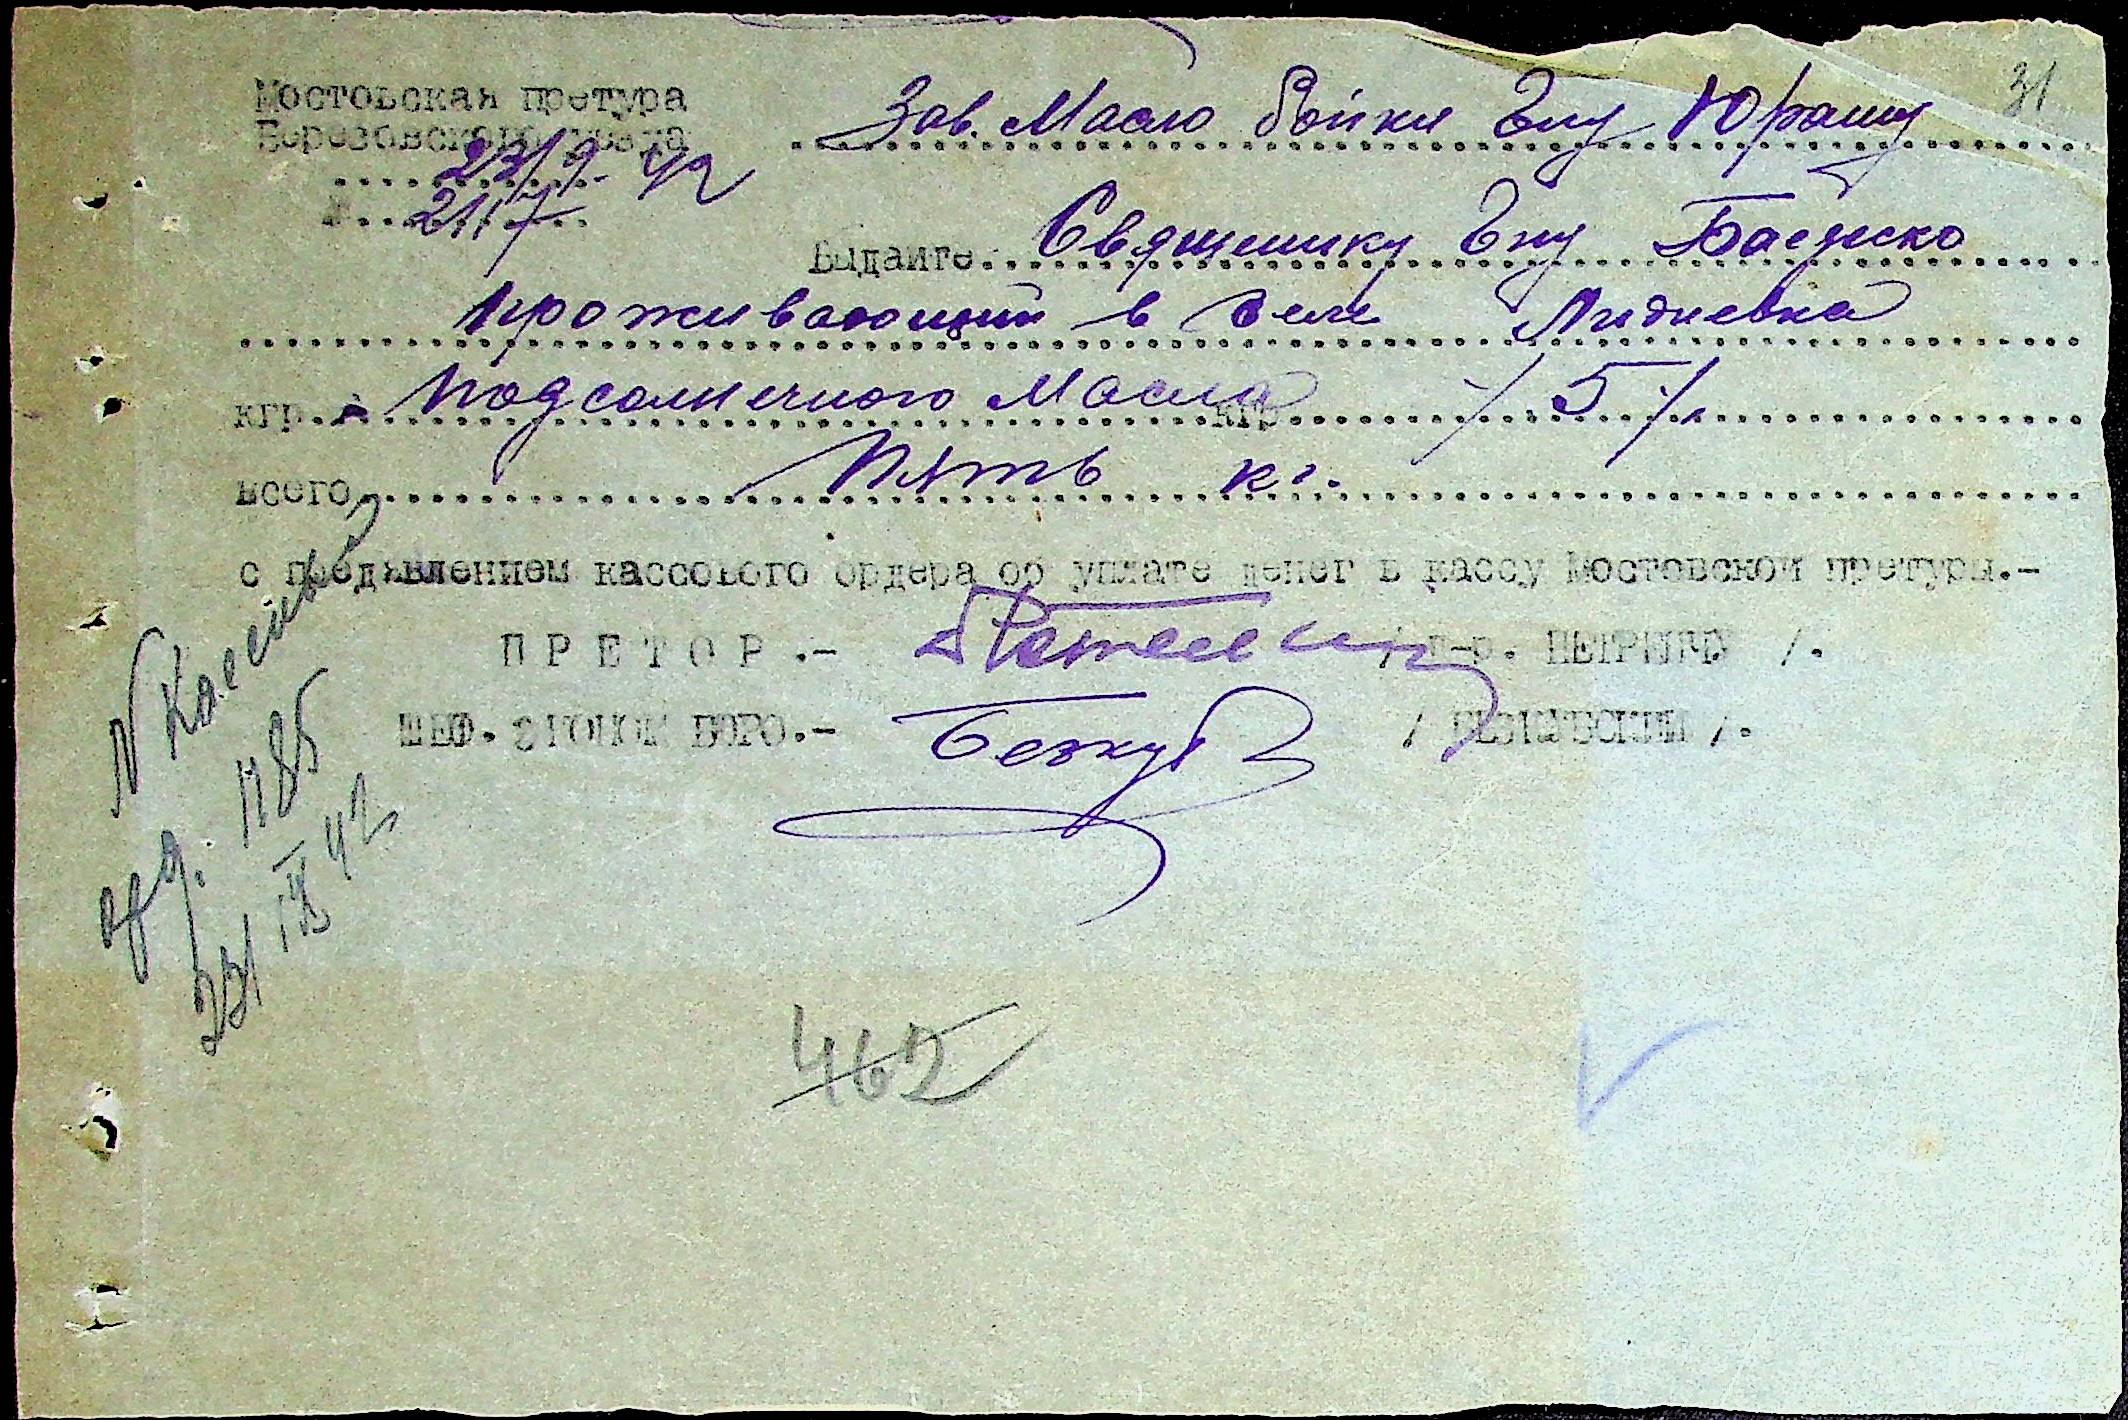 31
Мостовская претура
Березовского уезда
23/9 42
№ 2117
Зав. Масло Бойки Гну Юрашу
Выдайте Священику Гну
проживающий в селе Лидиевка
кгр. Подсолнечного Масла кгр /5/.
всего Пять кг.
с предявлением кассового ордера об уплате денег в кассу Мостовской претуры.-
ПРЕТОР.-
/ Д-р. ПЕТРИЧУ /.
ШЕФ. ЭКОНОМ БЮРО.-
Безкуб
/ БЕЗКУБСКИЙ /.
орд. 1185
23/IX 42
462